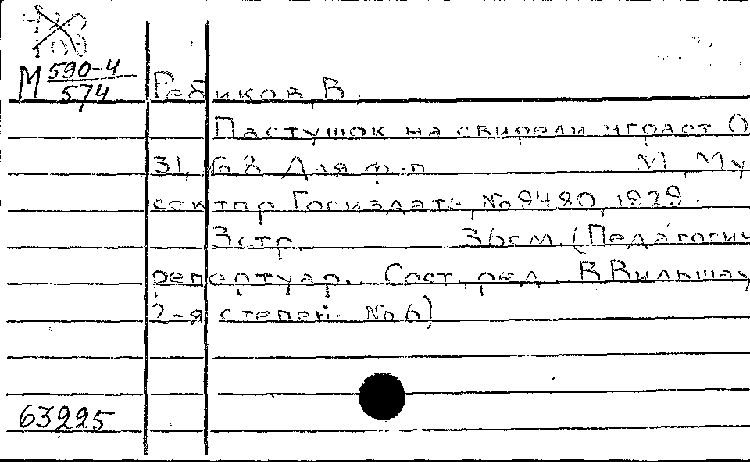 М 590-4
574
Ребиков, В.
Пастушок на свирели играет О
31, №8 Для ф-п М., Му
сектор Госиздата, №9480, 1929.
3стр. 36см. (Педагогич
репертуар. Сост. ред. В.Вильшау
2-я степень №6)
63225